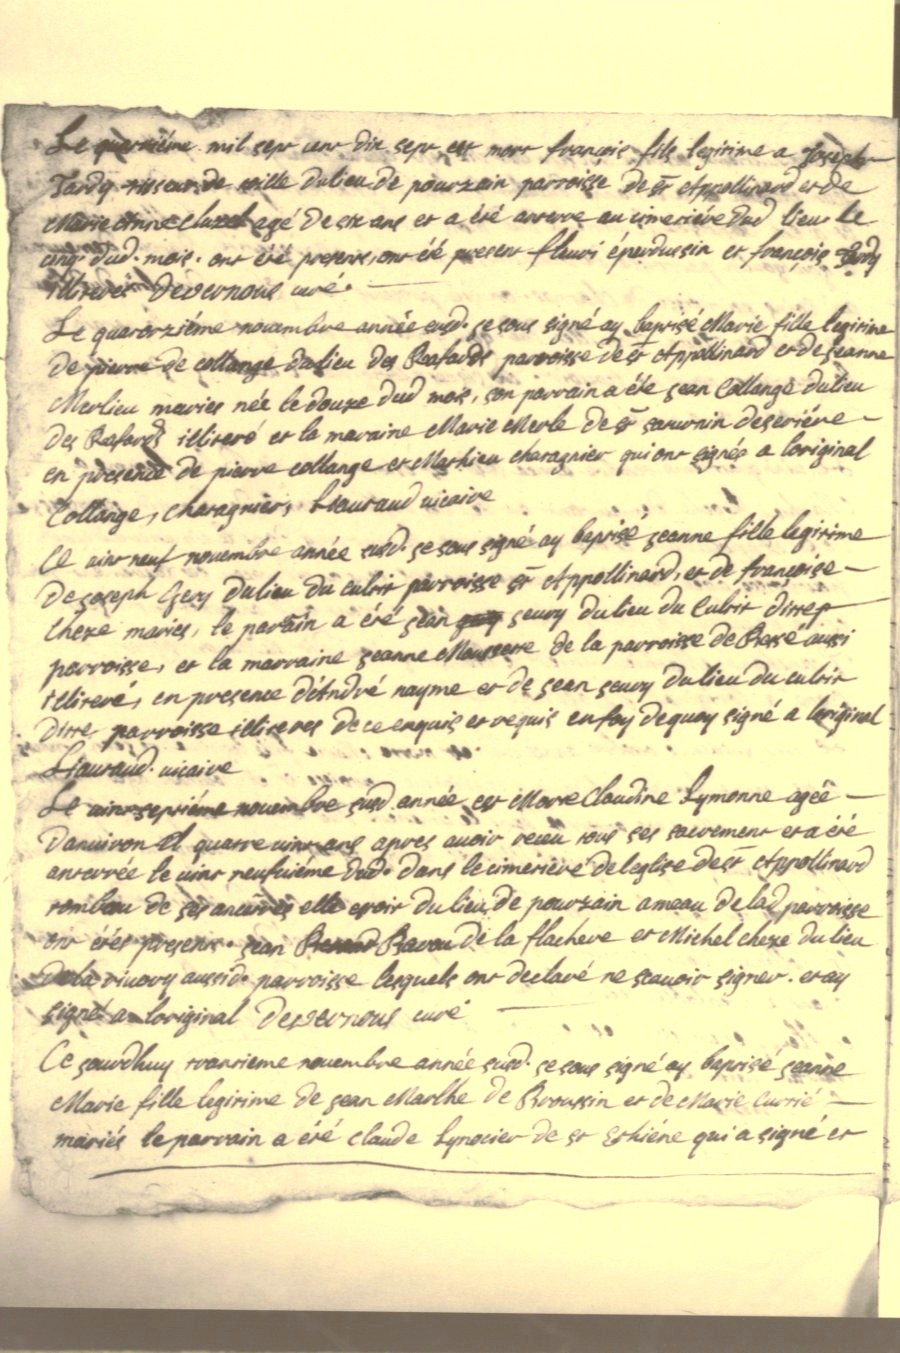 Le quatriéme mil sept cent dix sept est mort françois fils legitime a Joseph
Tardy tisseur de toille du lieu de pourzain parroisse de st Appollinard et de
Marie Anne Cluzel agé de six ans et a été anterre au cimetiere dud lieu le
cinq dud. mois. ont été presents, ont été present fleuri éperdussin et françois Tardy
illiterés Devernous curé.
Le quatorziéme novembre année susd. je sous signé ay baptisé Marie fille legitime
de pierre de collange du lieu des Rafards parroisse de st Appollinard et de jeanne
Merlieu mariés née le douze dud mois, son parrain a été jean Collange du lieu
des Rafards illiteré et la maraine Marie Merle de st saturnin
en presence de pierre collange et Mathieu charagnier qui ont signés a loriginal
Collange, charagnier, Liauraud vicaire
Ce vint neuf novembre année susd. je sous signé ay baptisé jeanne fille legitime
de joseph Gery du lieu du Cubit parroisse st Appollinard, et de françoise
Cheze mariés, le parain a été jean jeury du lieu du Cubit ditte
parroisse, et la marraine jeanne de la parroisse de Bessé aussi
illiteré, en presence d'André nayme et de jean jeury du lieu du cubit
ditte parroisse illiteres de ce enquis et requis en foy de quoy signé a loriginal
Liauraud. vicaire
Le vint septiéme novembre susd. année est Morte Claudine Lymonne agêe
d'anviron quatre vint ans apres avoir receu tous ses sacrement et a été
anterrée le vint neufviéme dud. dans le cimetiere de leglise de st Appollinard
tombeau de ses ancêtres elle etoit du lieu de pourzain ameau de lad parroisse
ont étés presents. jean Ravou de la flacheve et Michel cheze du lieu
de la rivory aussid. parroisse lesquels ont declaré ne scavoir signer. et ay
signé a loriginal Devernous curé
Ce jourdhuy trantieme novembre année susd. je sous signé ay baptisé jeanne
Marie fille legitime de jean Marthe de Broussin et de Marie Currié
mariés le parrain a été claude Lynocier de st Ethiéne qui a signé et